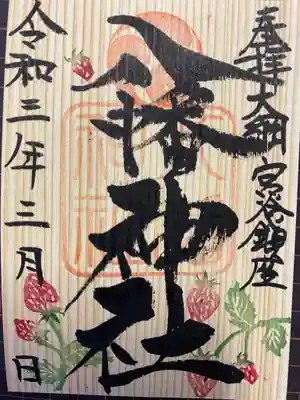 奉拝大綱宮谷鎮座
八幡神社
令和三年三月 日